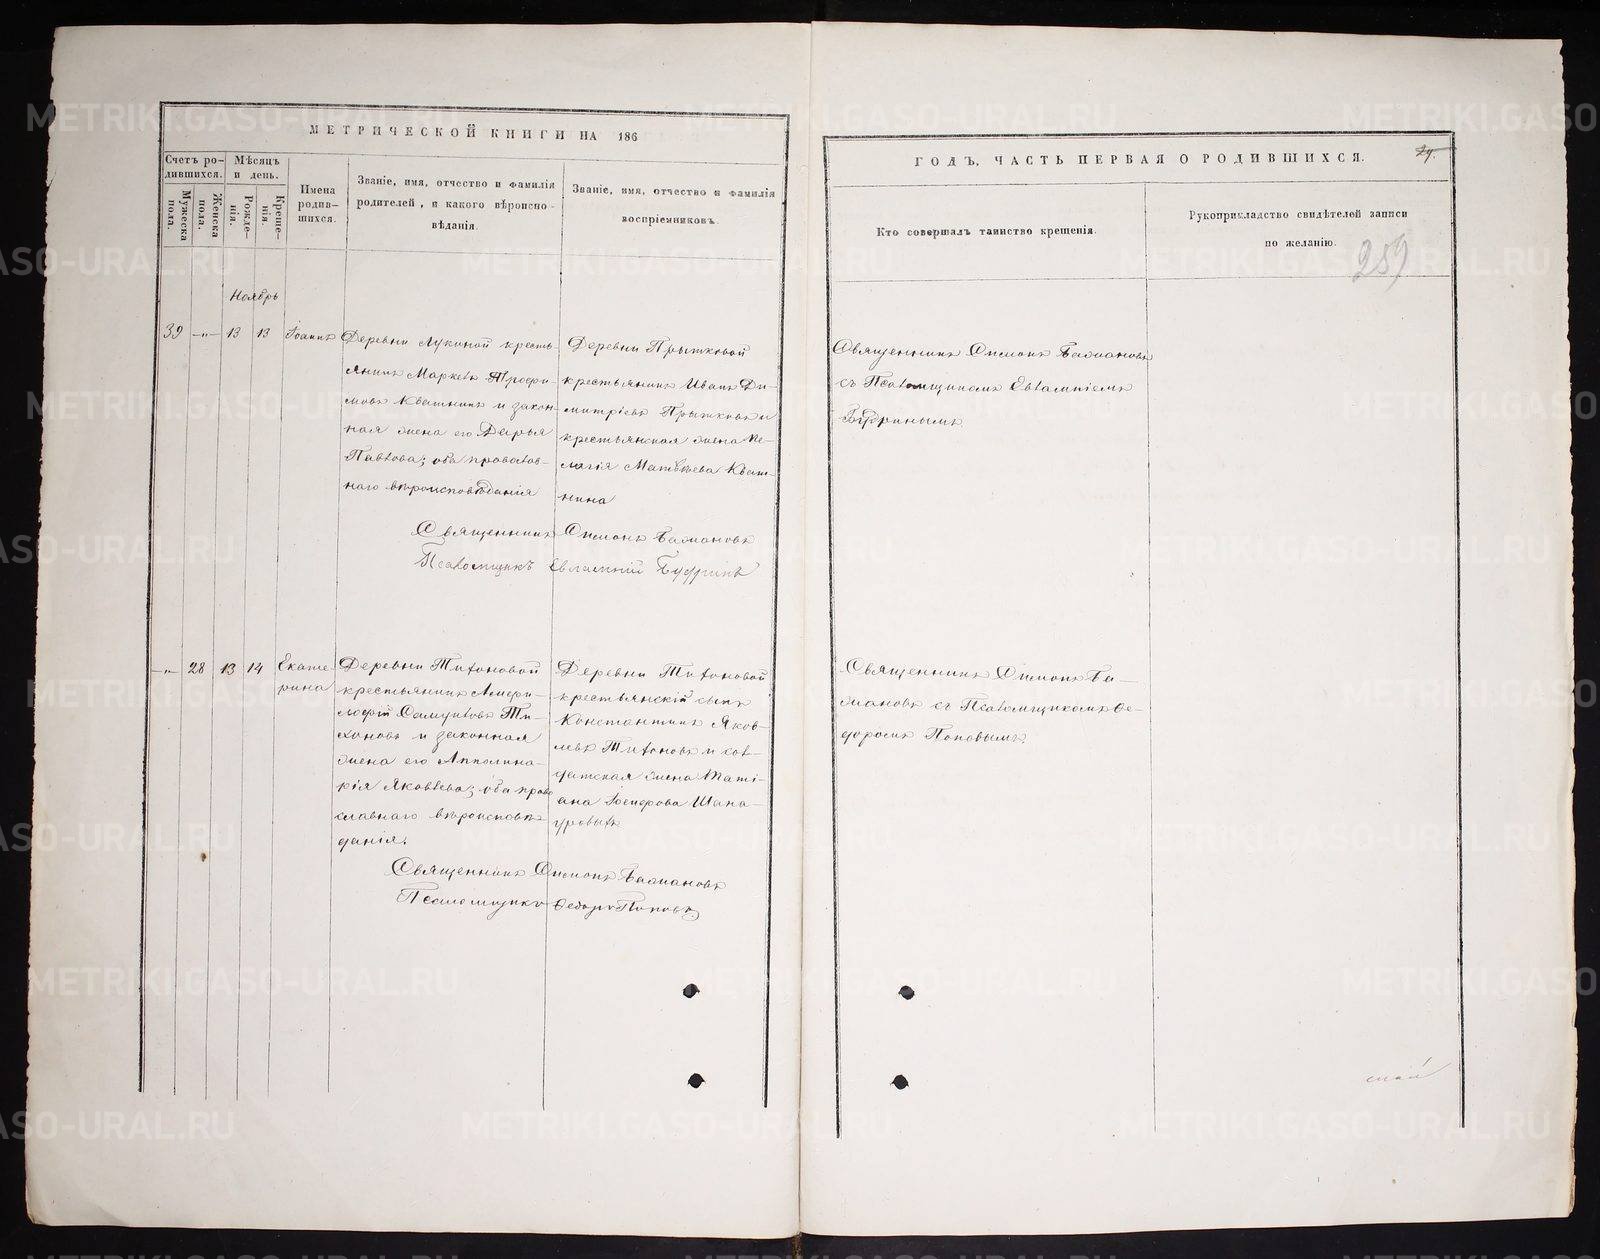 МЕТРИЧЕСКОЙ КНИГИ НА 186
Счетъ ро-
дившихся.
Мужеска
пола.
Женска
пола.
Мѣсяцъ
и день.
Рожде-
нія.
Креще-
нія.
Имена
родив-
шихся.
Званіе, имя, отчество и фамилія
родителей, и какого вѣроиспо-
вѣданія.
Званіе, имя, отчество и фамилія
воспріемниковъ.
Ноябрь
39 -„- 13 13 Іоаннъ
Деревни Лукиной кресть-
янинъ Маркелъ Трофи-
мовъ Квашнинъ и закон-
ная жена его Дарья
Павлова; оба православ-
наго вѣроисповѣданія
Деревни Прытковой
крестьянинъ Иванъ Ди-
митріевъ Прытковъ и
крестьянская жена Пе-
лагія Матвѣева Кваш-
нина
Священникъ Симонъ Бажановъ
Псаломщикъ Евлампій Будринъ
-„- 28 13 14 Екате-
рина
Деревни Тихоновой
крестьянинъ
Самуиловъ Ти-
хоновъ и законная
жена его Апполина-
рія Яковлева; оба право
славнаго вѣроисповѣ-
данія.
Деревни Тихоновой
крестьянскій сынъ
Константинъ Яков-
левъ Тихоновъ и сол-
датская жена Тати-
ана
Священникъ Симонъ Бажановъ
Псаломщикъ Ѳедоръ Поповъ
ГОДЪ, ЧАСТЬ ПЕРВАЯ О РОДИВШИХСЯ.
Кто совершалъ таинство крещенія.
Рукоприкладство свидѣтелей записи
по желанію.
259
Священникъ Симонъ Бажановъ
съ Псаломщикомъ Евлампіемъ
Будринымъ.
Священникъ Симонъ Ба-
жановъ съ Псаломщикомъ Ѳе-
доромъ Поповымъ.
METRIKI.GASO-URAL.RU